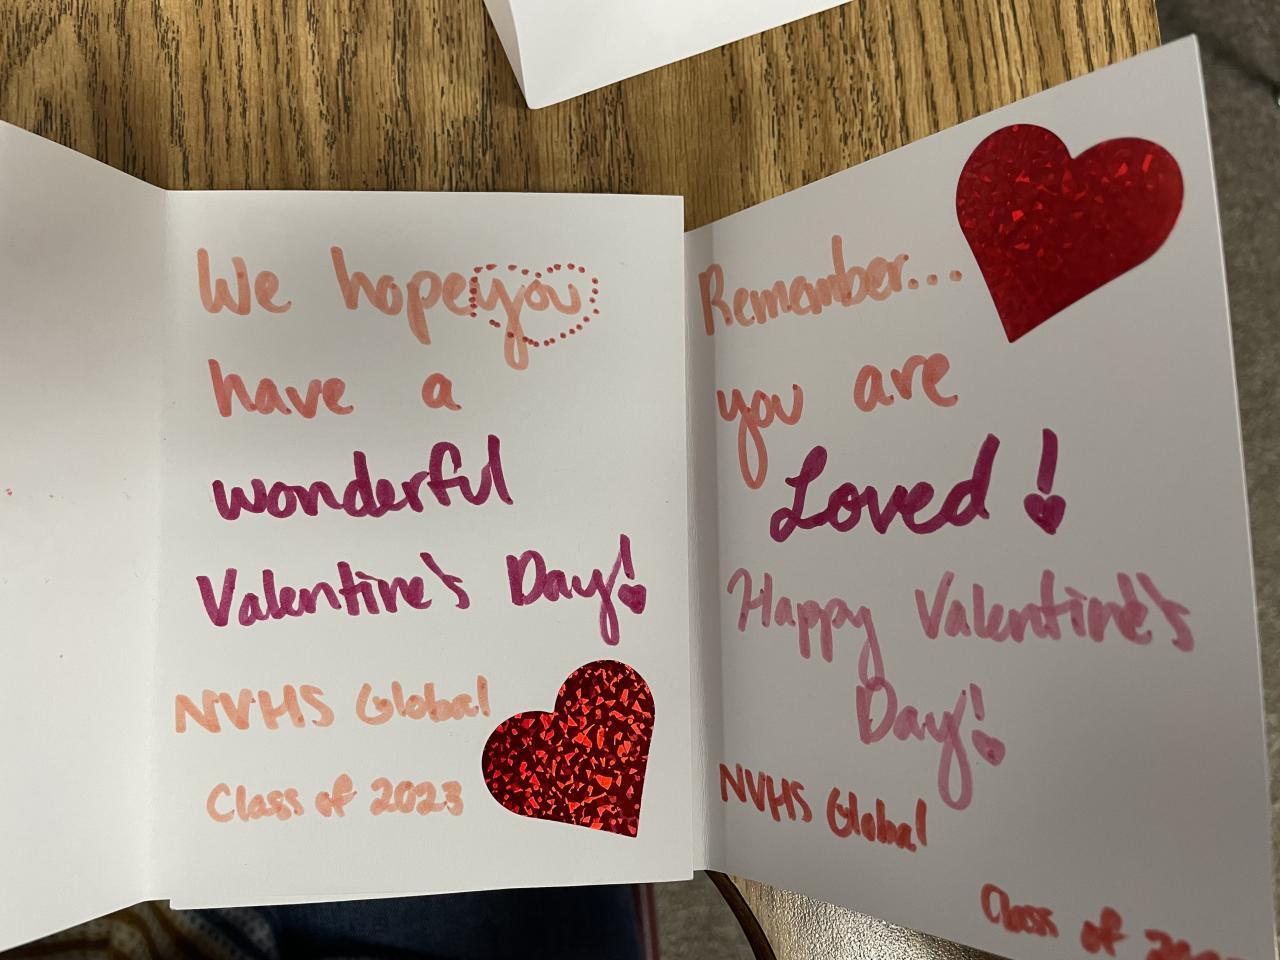 We hope you
have a
wonderful
Valentine's Day!
NVHS Global
Class of 2023
Remember...
you are
Loved!
Happy Valentine's
Day!
NVHS Global
Class of